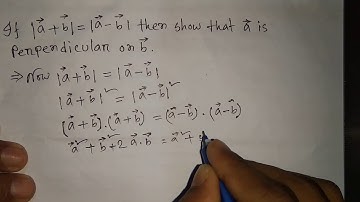 If |a⃗+b⃗|=|a⃗-b⃗| then show that a⃗ is
perpendicular on b⃗.
⇒ Now |a⃗+b⃗| = |a⃗-b⃗|
|a⃗+b⃗|² = |a⃗-b⃗|²
(a⃗+b⃗).(a⃗+b⃗) = (a⃗-b⃗).(a⃗-b⃗)
a⃗²+b⃗²+2a⃗.b⃗ = a⃗²+